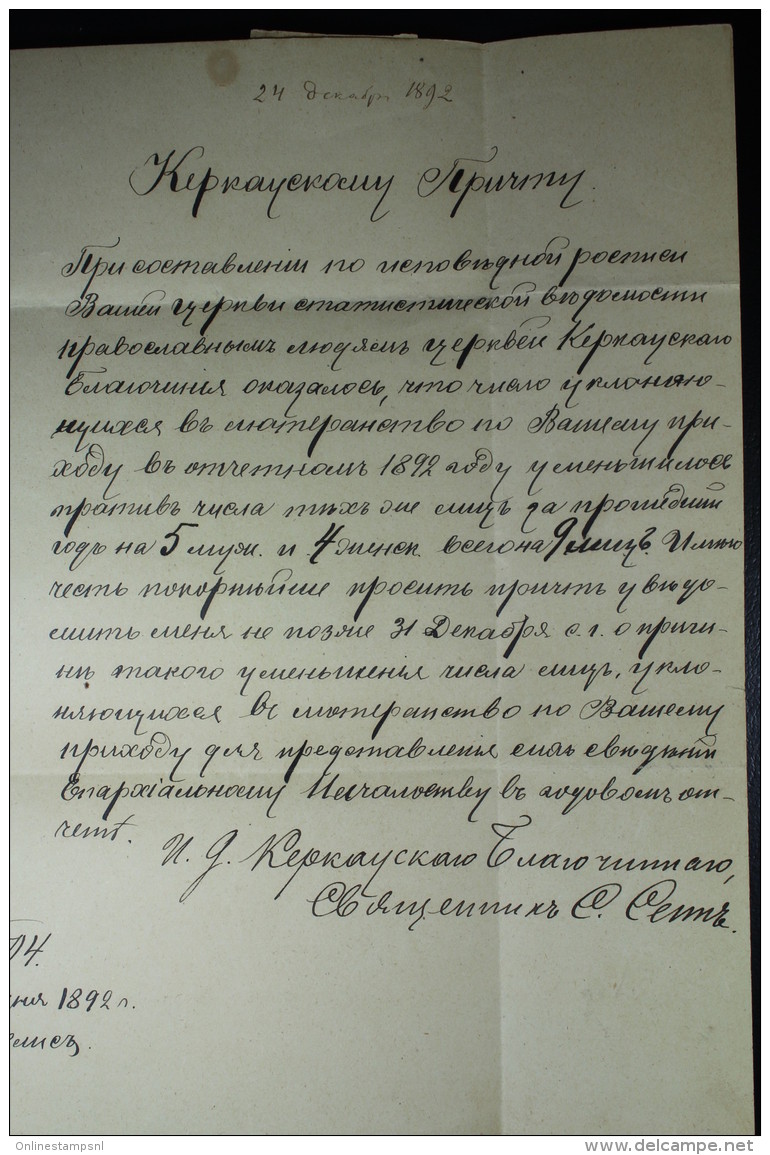 24 Декабря 1892
Керкаускому Причту.
При составленіи по исповѣдной росписи
Вашей церкви статистической вѣдомости
православнымъ людямъ церквей Керкаускаго
Благочинія оказалось, что число уклоняю-
щихся въ лютеранство по Вашему при-
ходу въ отчетномъ 1892 году уменьшилось
противъ числа тѣхъ же лицъ за прошедшій
годъ на 5 муж. и 4 женск. всего на 9 лицъ. Имѣю
честь покорнѣйше просить причтъ увѣдо-
мить меня не позже 31 Декабря с. г. о причи-
нѣ такого уменьшенія числа лицъ, укло-
няющихся въ лютеранство по Вашему
приходу для представленія сихъ свѣдѣній
Епархіальному Начальству въ годовомъ от-
четѣ.
И. д. Керкаускаго Благочиннаго,
Священникъ С.
04.
1892 г.
Onlinestampsnl
www.delcampe.net